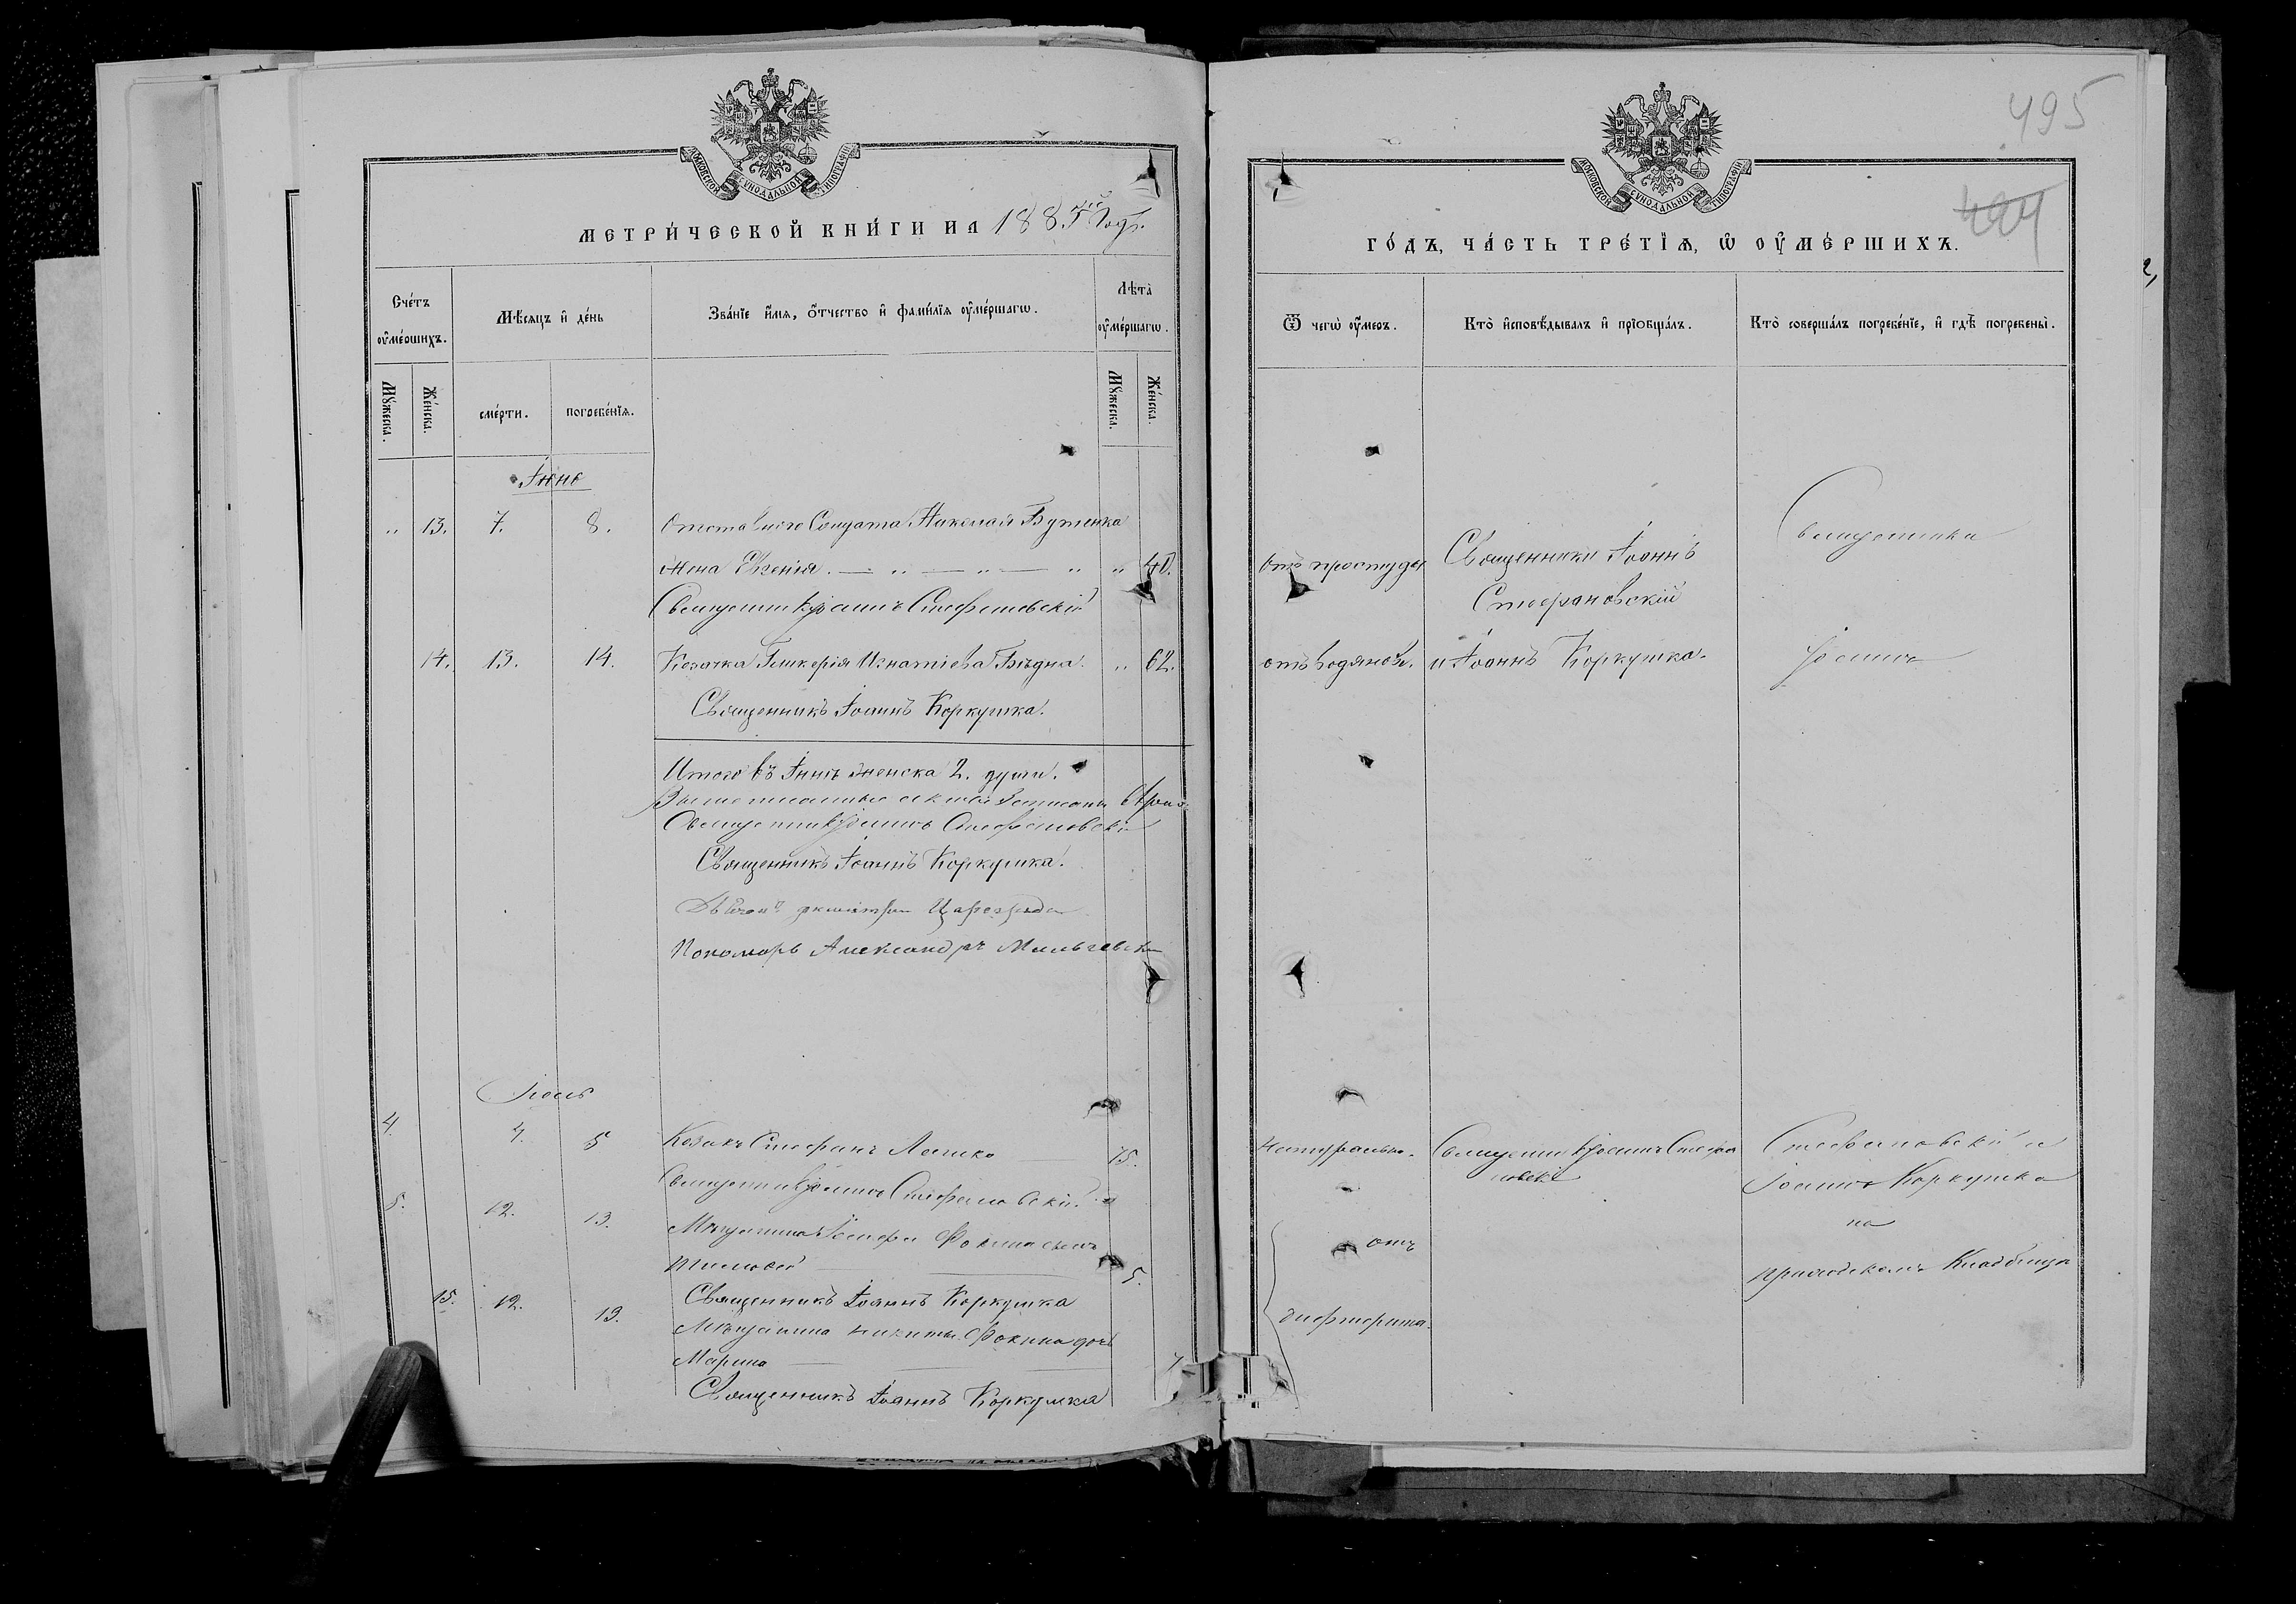 МОСКОВСКОЙ СУНОДАЛЬНОЙ ТИПОГРАФІИ
МЕТРИ́ЧЕСКОЙ КНИ́ГИ НА 1885й Годъ.
Сче́тъ ᲂу҆ме́ршихъ.
Мꙋ́жеска.
Же́нска.
Мѣ́сяцъ и҆ де́нь
сме́рти.
погребе́нїѧ.
Зва́нїе и҆́мѧ, ѻ҆́тчество и҆ фами́лїѧ ᲂу҆ме́ршагѡ.
Лѣ́та ᲂу҆ме́ршагѡ.
Мꙋ́жеска.
Же́нска.
Іюнь
" 13. 7. 8. Отставного Солдата Николая Бутенка
жена Евгенія. — " — " — " " 40.
Священникъ Іоаннъ Стефановскій
14. 13. 14. Козачка Гликерія Игнатіева Бѣдна. " 62.
Священникъ Іоаннъ Коркушка.
Итого въ Іюнѣ женска 2. души.
Вышеписанные акты записаны вѣрно
Священникъ Іоаннъ Стефановскій
Священникъ Іоаннъ Коркушка.
Пономарь Александръ
Іюль
4. 4. 5 Козакъ Стефанъ 75.
Священникъ Іоаннъ Стефановскій
5. 12. 13. Мѣщанина Фокина сынъ
Тимофей 5.
Священникъ Іоаннъ Коркушка
15. 12. 13. Мѣщанина Никиты Фокина дочь
Марина 7
Священникъ Іоаннъ Коркушка
495
494
МОСКОВСКОЙ СУНОДАЛЬНОЙ ТИПОГРАФІИ
ГО́ДЪ, ЧА́СТЬ ТРЕ́ТЇѦ, Ѡ҆ ОУ҆МЕ́РШИХЪ.
Ѿ чегѡ̀ ᲂу҆́меръ.
Кто̀ и҆сповѣ́дывалъ и҆ прїѡбща́лъ.
Кто̀ соверша́лъ погребе́нїе, и҆ гдѣ̀ погребены̀.
отъ простуды
Священники Іоаннъ
Стефановскій
Священники
отъ водяной.
и Іоаннъ Коркушка.
Іоаннъ
натурально.
Священникъ Іоаннъ Стефа
новскій
Стефановскій и
Іоаннъ Коркушка
на
приходскомъ Кладбищѣ
отъ
дифтерита.